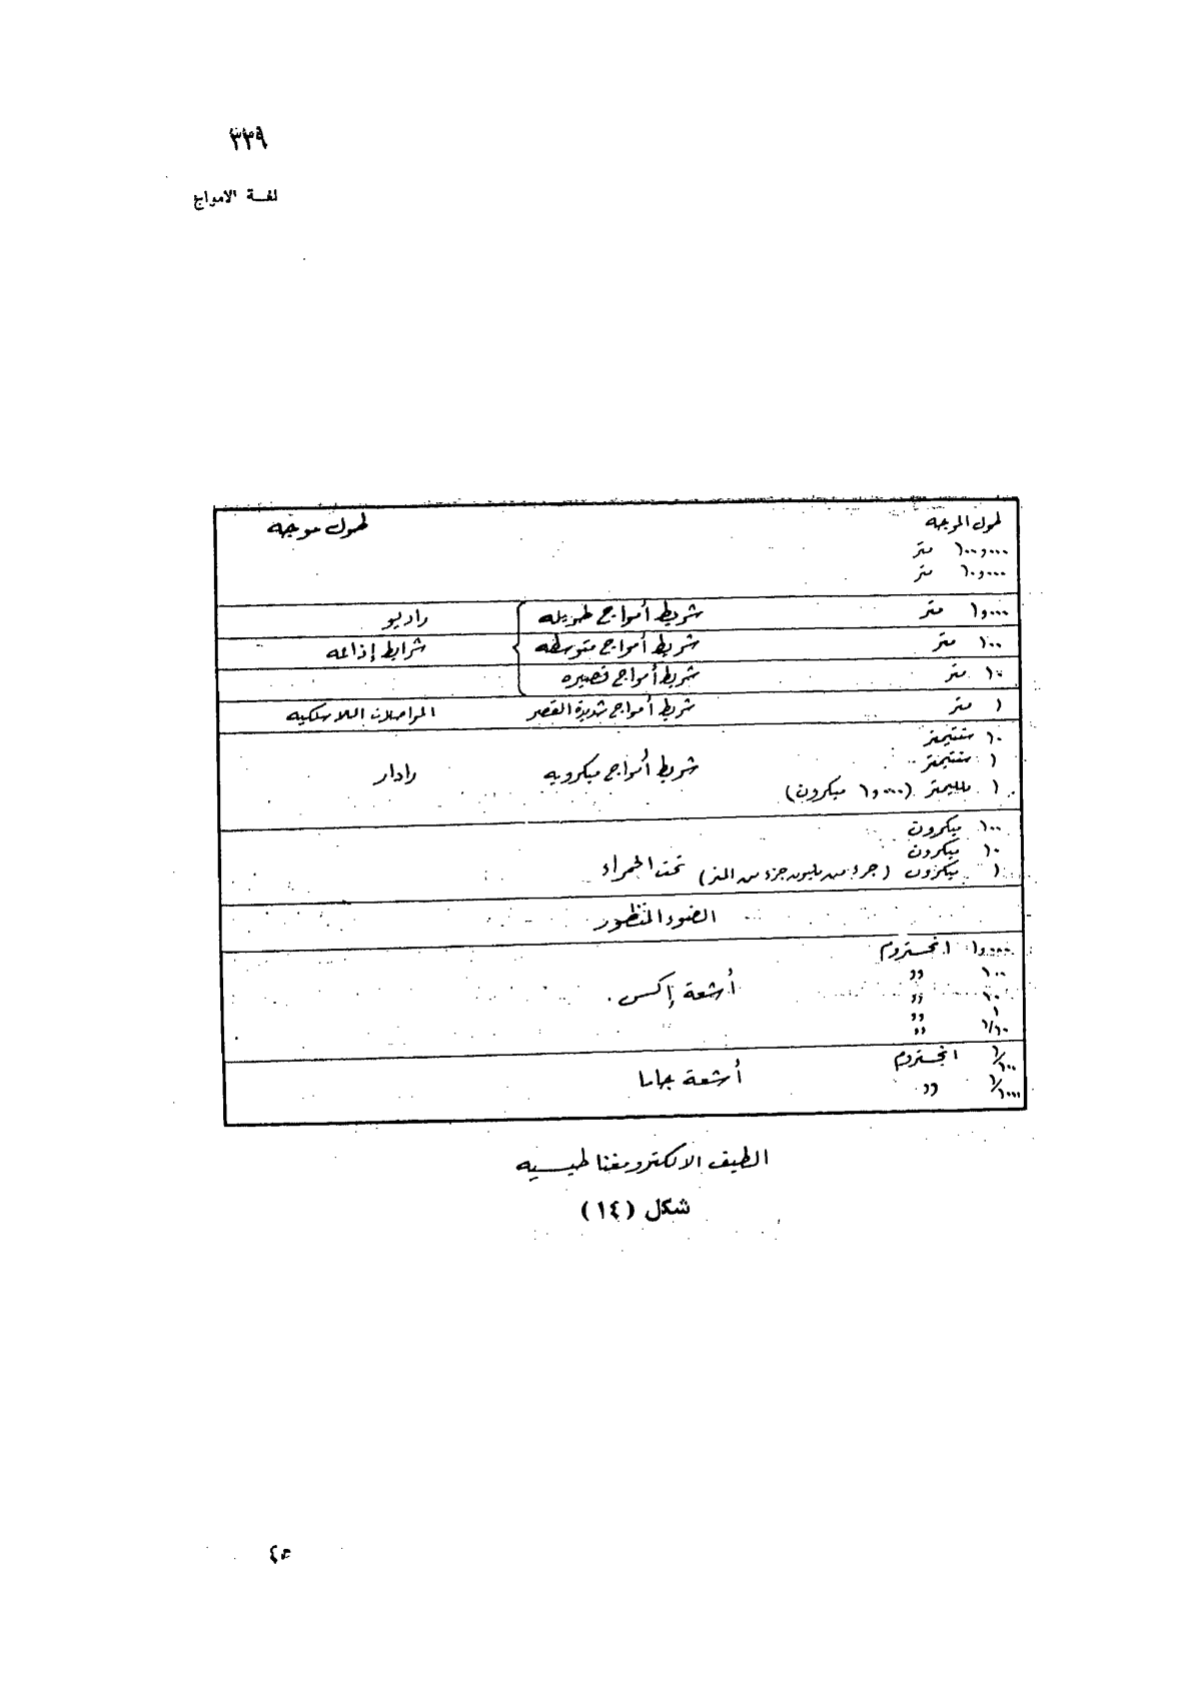 ٣٣٩
لغــة الامواج
طول الموجه طول موجه
١٠٠و٠٠٠ متر
١٠و٠٠٠ متر
١و٠٠٠ متر شريط أمواج طويله راديو
١٠٠ متر شريط أمواج متوسطه شرايط إذاعه
١٠ متر شريط أمواج قصيره
١ متر شريط أمواج شديدة القصر المواصلات اللاسلكيه
١٠ سنتيمتر
١ سنتيمتر شريط أمواج ميكرويه رادار
١ ملليمتر (١و٠٠٠ ميكرون)
١٠٠ ميكرون
١٠ ميكرون
١ ميكرون (جزء من مليون جزء من المتر) تحت الحمراء
الضوء المنظور
١و٠٠٠ انجستروم
١٠٠ دد
١٠ دد أشعة إكس
١ دد
١/١٠ دد
١/١٠٠ انجستروم
١/١٠٠٠ دد أشعة جاما
الطيف الالكترومغناطيسيه
شكل (١٤)